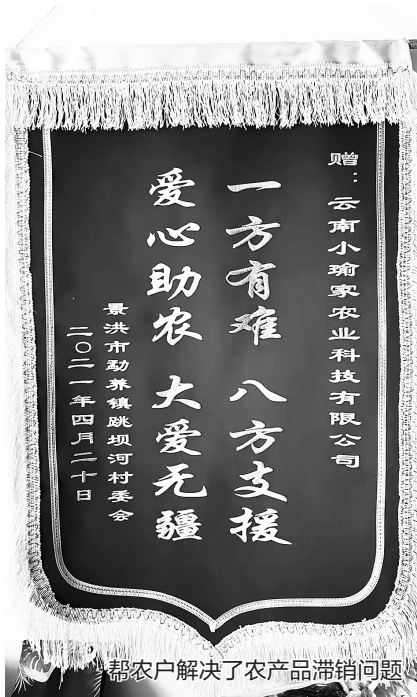 赠：云南小瑜家农业科技有限公司
一方有难 八方支援
爱心助农 大爱无疆
景洪市勐养镇跳坝河村委会
二〇二一年四月二十日
帮农户解决了农产品滞销问题